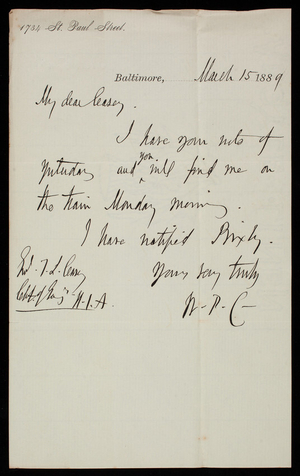 1734 St. Paul Street.
Baltimore, March 15 1889
My dear Casey.
I have your note of
yesterday and you will find me on
the train Monday morning.
I have notified Bixby.
Yours very truly
W. P. C
T. L. Casey
Chf. of Eng's U.S.A.